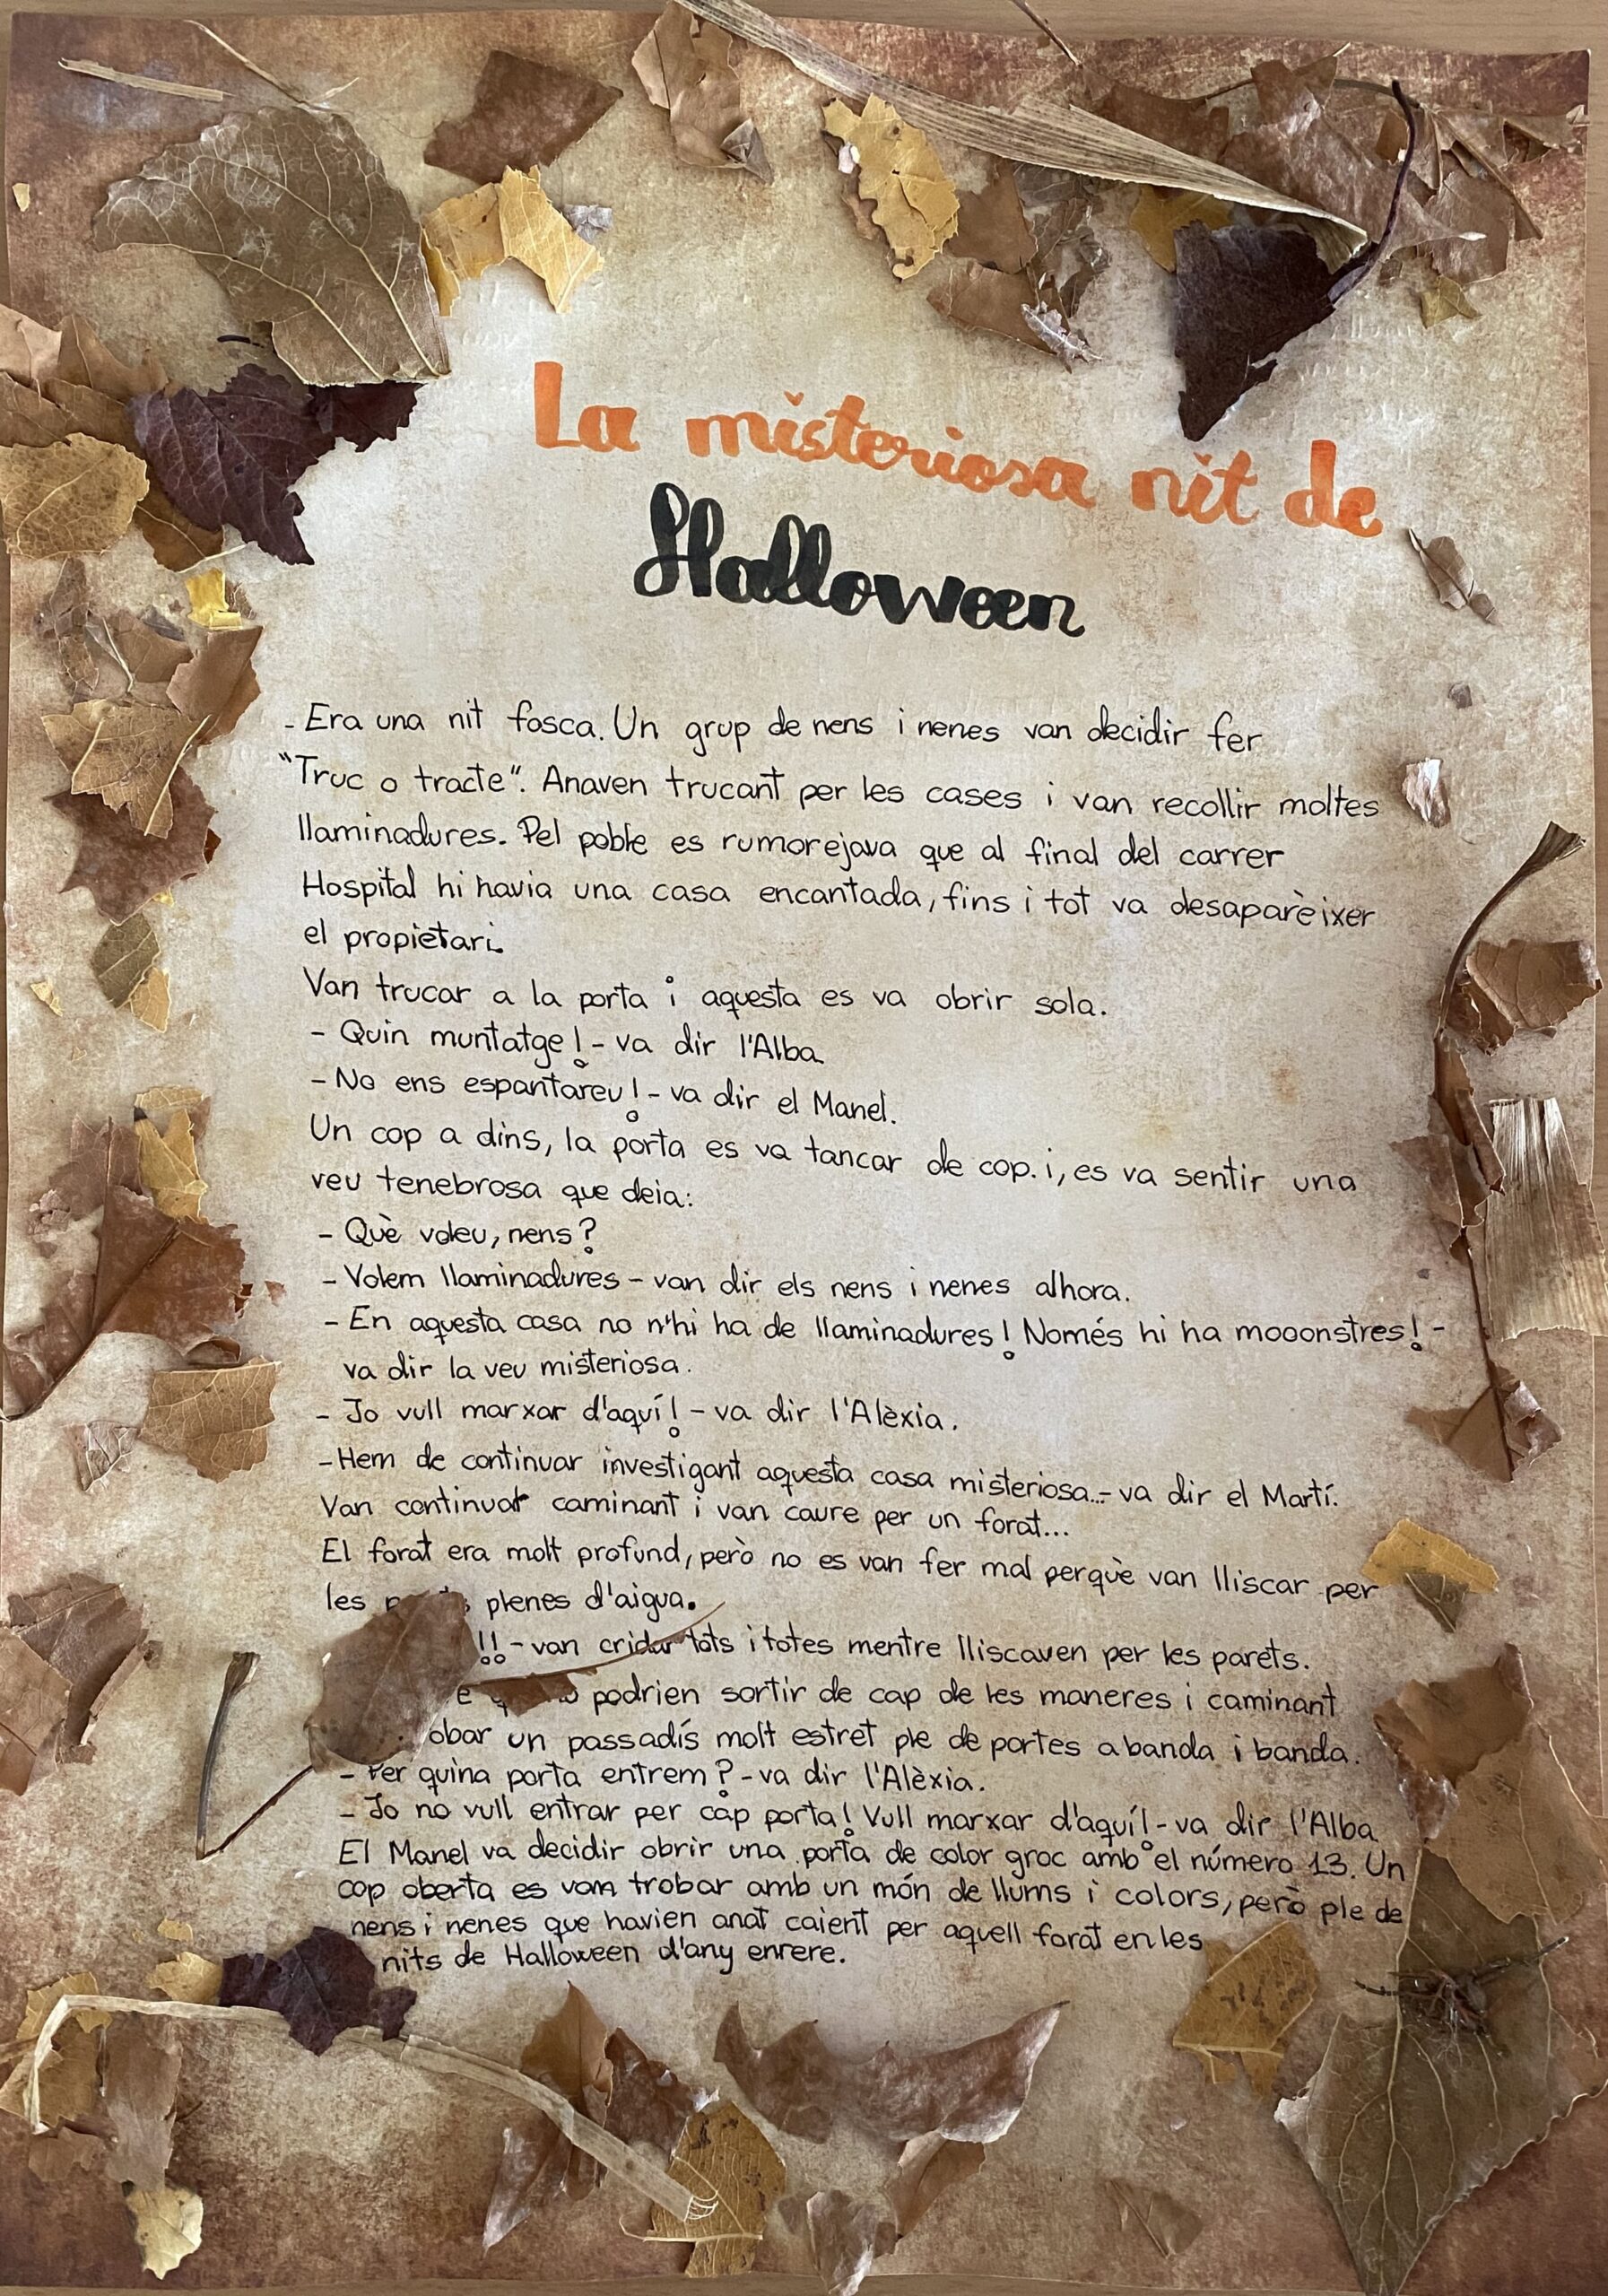 La misteriosa nit de
Halloween
- Era una nit fosca. Un grup de nens i nenes van decidir fer
"Truc o tracte". Anaven trucant per les cases i van recollir moltes
llaminadures. Pel poble es rumorejava que al final del carrer
Hospital hi havia una casa encantada, fins i tot va desaparèixer
el propietari.
Van trucar a la porta i aquesta es va obrir sola.
- Quin muntatge! - va dir l'Alba
- No ens espantareu! - va dir el Manel.
Un cop a dins, la porta es va tancar de cop. i, es va sentir una
veu tenebrosa que deia:
- Què voleu, nens?
- Volem llaminadures - van dir els nens i nenes alhora.
- En aquesta casa no n'hi ha de llaminadures! Només hi ha mooonstres! -
va dir la veu misteriosa.
- Jo vull marxar d'aquí! - va dir l'Alèxia.
- Hem de continuar investigant aquesta casa misteriosa... - va dir el Martí.
Van continuar caminant i van caure per un forat...
El forat era molt profund, però no es van fer mal perquè van lliscar per
les plenes d'aigua.
!! - van cridar tots i totes mentre lliscaven per les parets.
podrien sortir de cap de les maneres i caminant
obar un passadís molt estret ple de portes a banda i banda.
- Per quina porta entrem? - va dir l'Alèxia.
- Jo no vull entrar per cap porta! Vull marxar d'aquí! - va dir l'Alba
El Manel va decidir obrir una porta de color groc amb el número 13. Un
cop oberta es van trobar amb un món de llums i colors, però ple de
nens i nenes que havien anat caient per aquell forat en les
nits de Halloween d'any enrere.